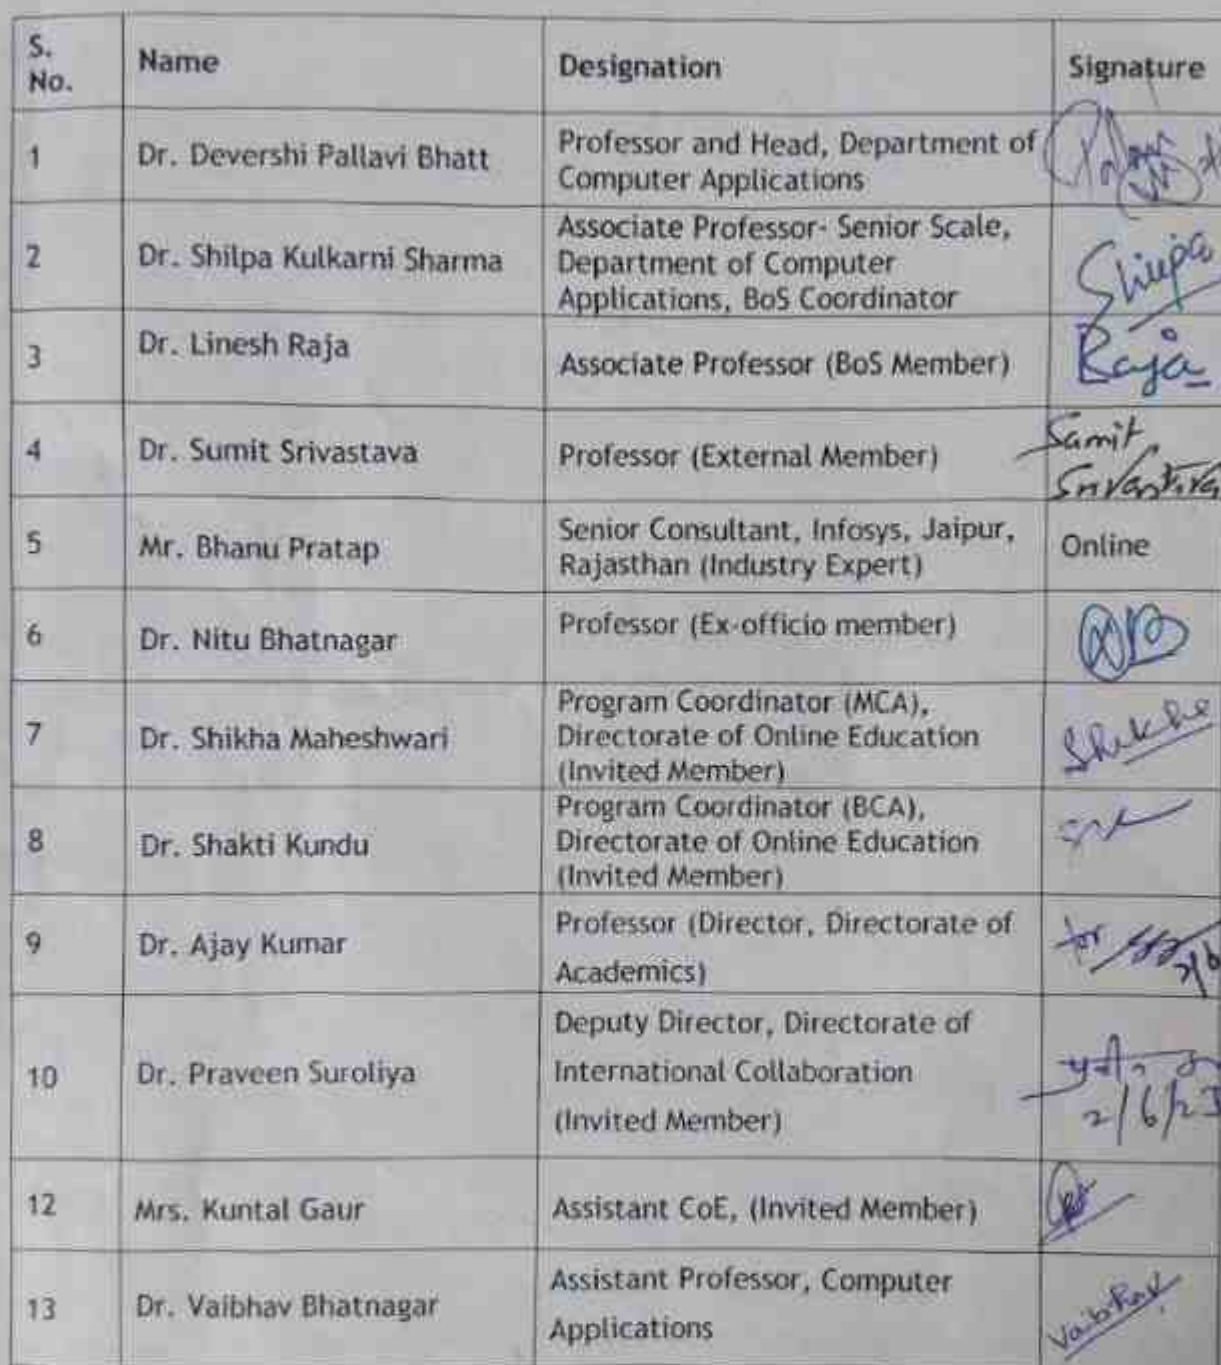 S.
No.
Name
Designation
Signature
1
Dr. Devershi Pallavi Bhatt
Professor and Head, Department of
Computer Applications
2
Dr. Shilpa Kulkarni Sharma
Associate Professor- Senior Scale,
Department of Computer
Applications, BoS Coordinator
Shilpa
3
Dr. Linesh Raja
Associate Professor (BoS Member)
Raja
4
Dr. Sumit Srivastava
Professor (External Member)
Sumit
Srivastava
5
Mr. Bhanu Pratap
Senior Consultant, Infosys, Jaipur,
Rajasthan (Industry Expert)
Online
6
Dr. Nitu Bhatnagar
Professor (Ex-officio member)
7
Dr. Shikha Maheshwari
Program Coordinator (MCA),
Directorate of Online Education
(Invited Member)
Shikha
8
Dr. Shakti Kundu
Program Coordinator (BCA),
Directorate of Online Education
(Invited Member)
9
Dr. Ajay Kumar
Professor (Director, Directorate of
Academics)
for
10
Dr. Praveen Suroliya
Deputy Director, Directorate of
International Collaboration
(Invited Member)
2/6/23
12
Mrs. Kuntal Gaur
Assistant CoE, (Invited Member)
13
Dr. Vaibhav Bhatnagar
Assistant Professor, Computer
Applications
Vaibhav